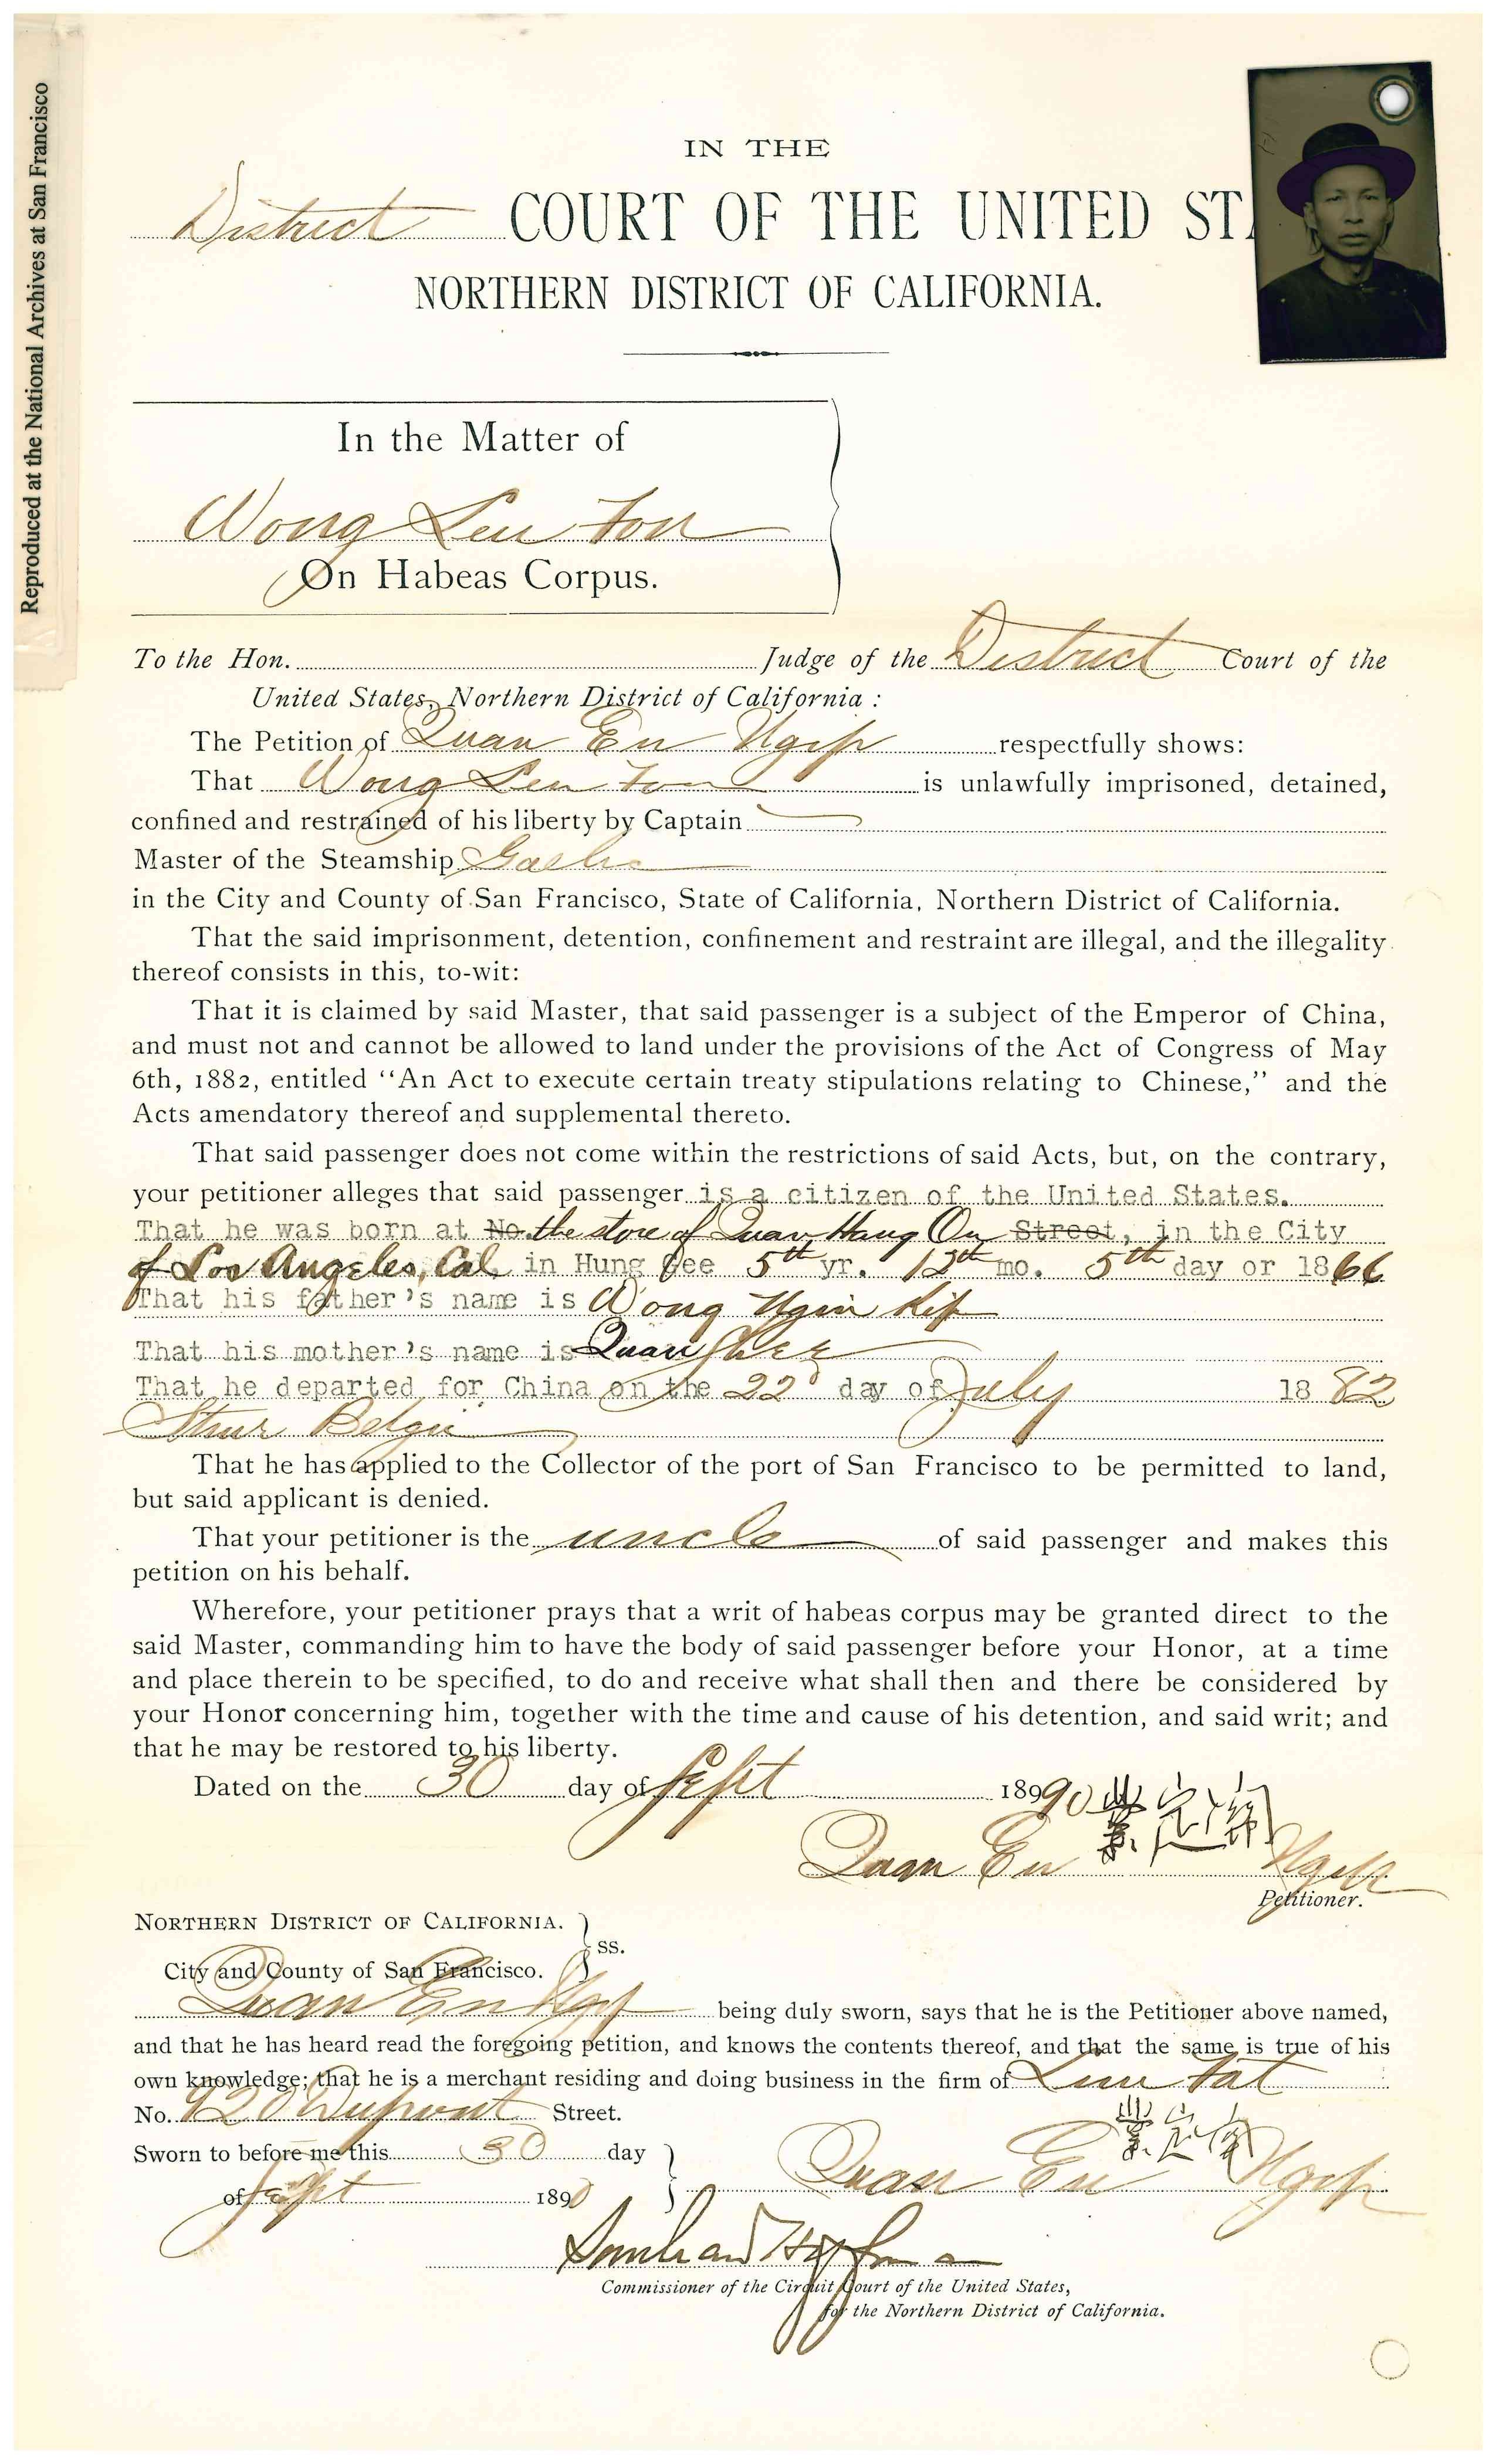 Reproduced at the National Archives at San Francisco
IN THE
District COURT OF THE UNITED STA
NORTHERN DISTRICT OF CALIFORNIA.
In the Matter of
Wong Leu Fon
On Habeas Corpus.
To the Hon. Judge of the District Court of the
United States, Northern District of California :
The Petition of Quan En Ngip respectfully shows:
That Wong Leu Fon is unlawfully imprisoned, detained,
confined and restrained of his liberty by Captain
Master of the Steamship Gaelic
in the City and County of San Francisco, State of California, Northern District of California.
That the said imprisonment, detention, confinement and restraint are illegal, and the illegality
thereof consists in this, to-wit:
That it is claimed by said Master, that said passenger is a subject of the Emperor of China,
and must not and cannot be allowed to land under the provisions of the Act of Congress of May
6th, 1882, entitled "An Act to execute certain treaty stipulations relating to Chinese," and the
Acts amendatory thereof and supplemental thereto.
That said passenger does not come within the restrictions of said Acts, but, on the contrary,
your petitioner alleges that said passenger is a citizen of the United States.
That he was born at No. the store of Quan Hang On Street, in the City
of Los Angeles, Cal. in Hung Gee 5th yr. 12th mo. 5th day or 1866
That his father's name is Wong Ngin Kip
That his mother's name is Quan Shee
That he departed for China on the 22d day of July 1882
Stmr Belgic
That he has applied to the Collector of the port of San Francisco to be permitted to land,
but said applicant is denied.
That your petitioner is the uncle of said passenger and makes this
petition on his behalf.
Wherefore, your petitioner prays that a writ of habeas corpus may be granted direct to the
said Master, commanding him to have the body of said passenger before your Honor, at a time
and place therein to be specified, to do and receive what shall then and there be considered by
your Honor concerning him, together with the time and cause of his detention, and said writ; and
that he may be restored to his liberty.
Dated on the 30 day of Sept 1890
Quan En Ngip
Petitioner.
NORTHERN DISTRICT OF CALIFORNIA.
ss.
City and County of San Francisco.
Quan En Ngip being duly sworn, says that he is the Petitioner above named,
and that he has heard read the foregoing petition, and knows the contents thereof, and that the same is true of his
own knowledge; that he is a merchant residing and doing business in the firm of Lun Fat
No. 920 Dupont Street.
Sworn to before me this 30 day
of Sept 1890
Quan En Ngip
Commissioner of the Circuit Court of the United States,
for the Northern District of California.